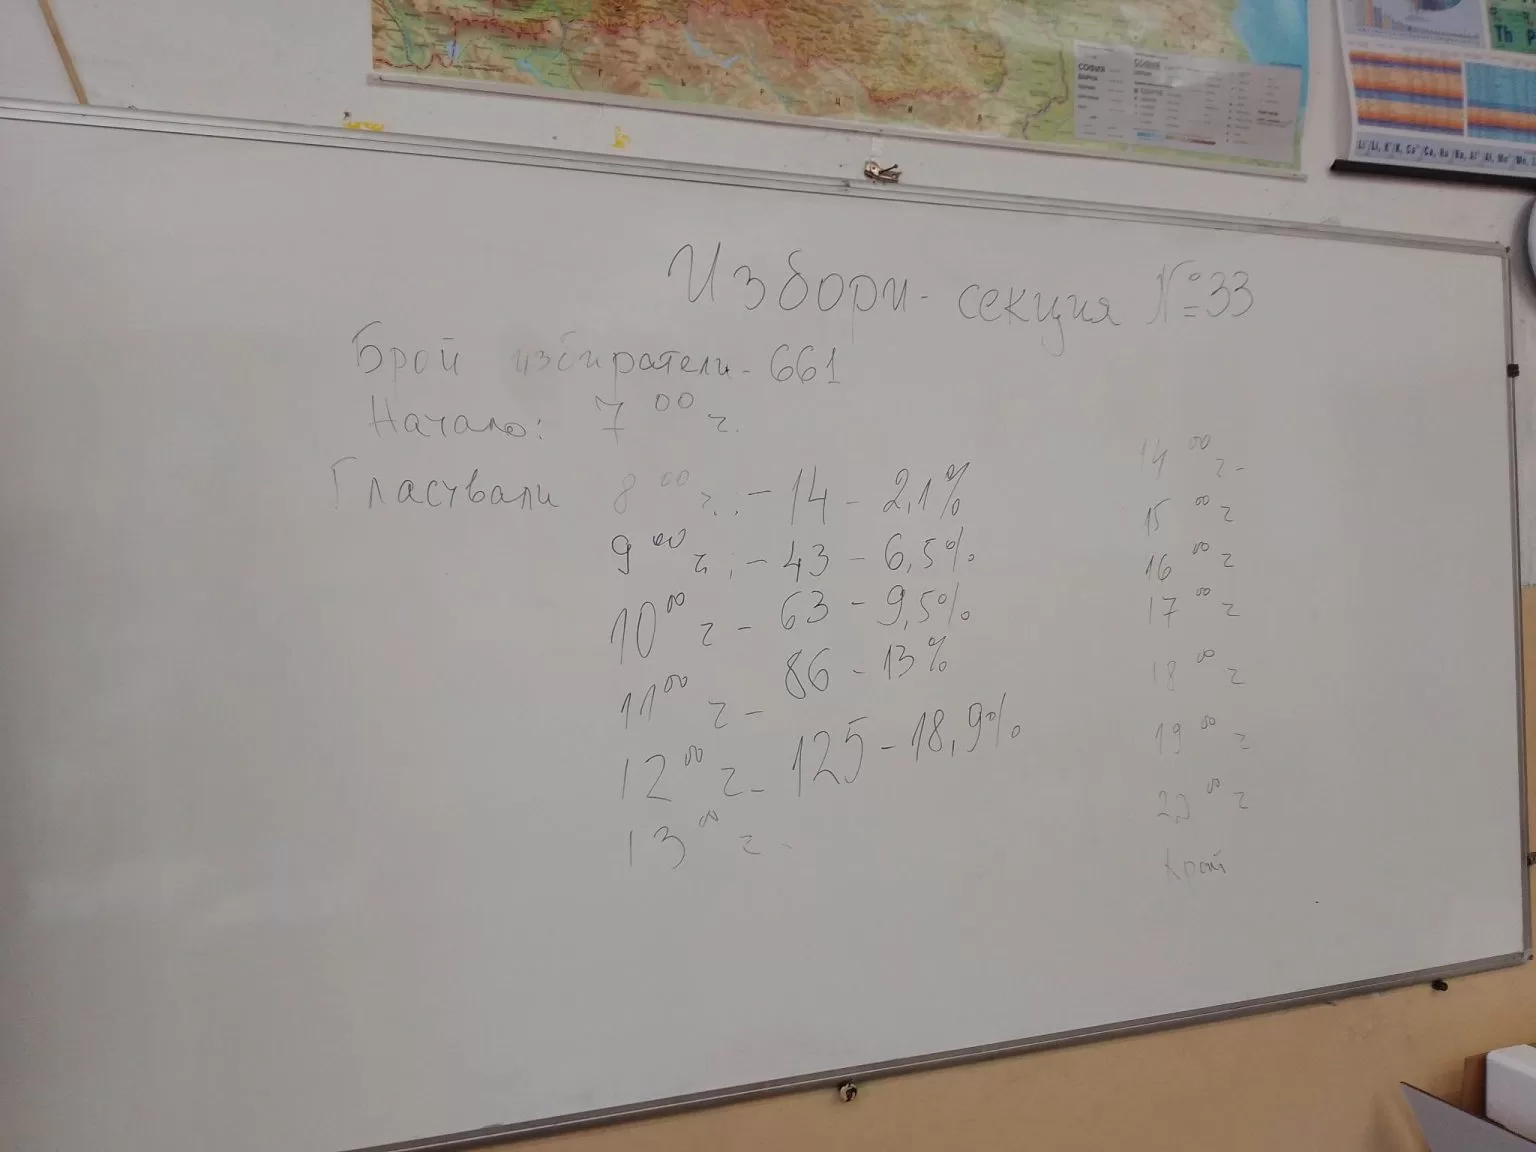 СОФИЯ
Г Ъ Р Ц И Я
Th
Избори - секция №33
Брой избиратели - 661
Начало: 7 00 ч.
Гласували 8 00 ч. : - 14 - 2,1%
9 00 ч. : - 43 - 6,5%
10 00 ч - 63 - 9,5%
11 00 ч - 86 - 13%
12 00 ч - 125 - 18,9%
13 00 ч -
14 00 ч -
15 00 ч
16 00 ч
17 00 ч
18 00 ч
19 00 ч
20 00 ч
Край